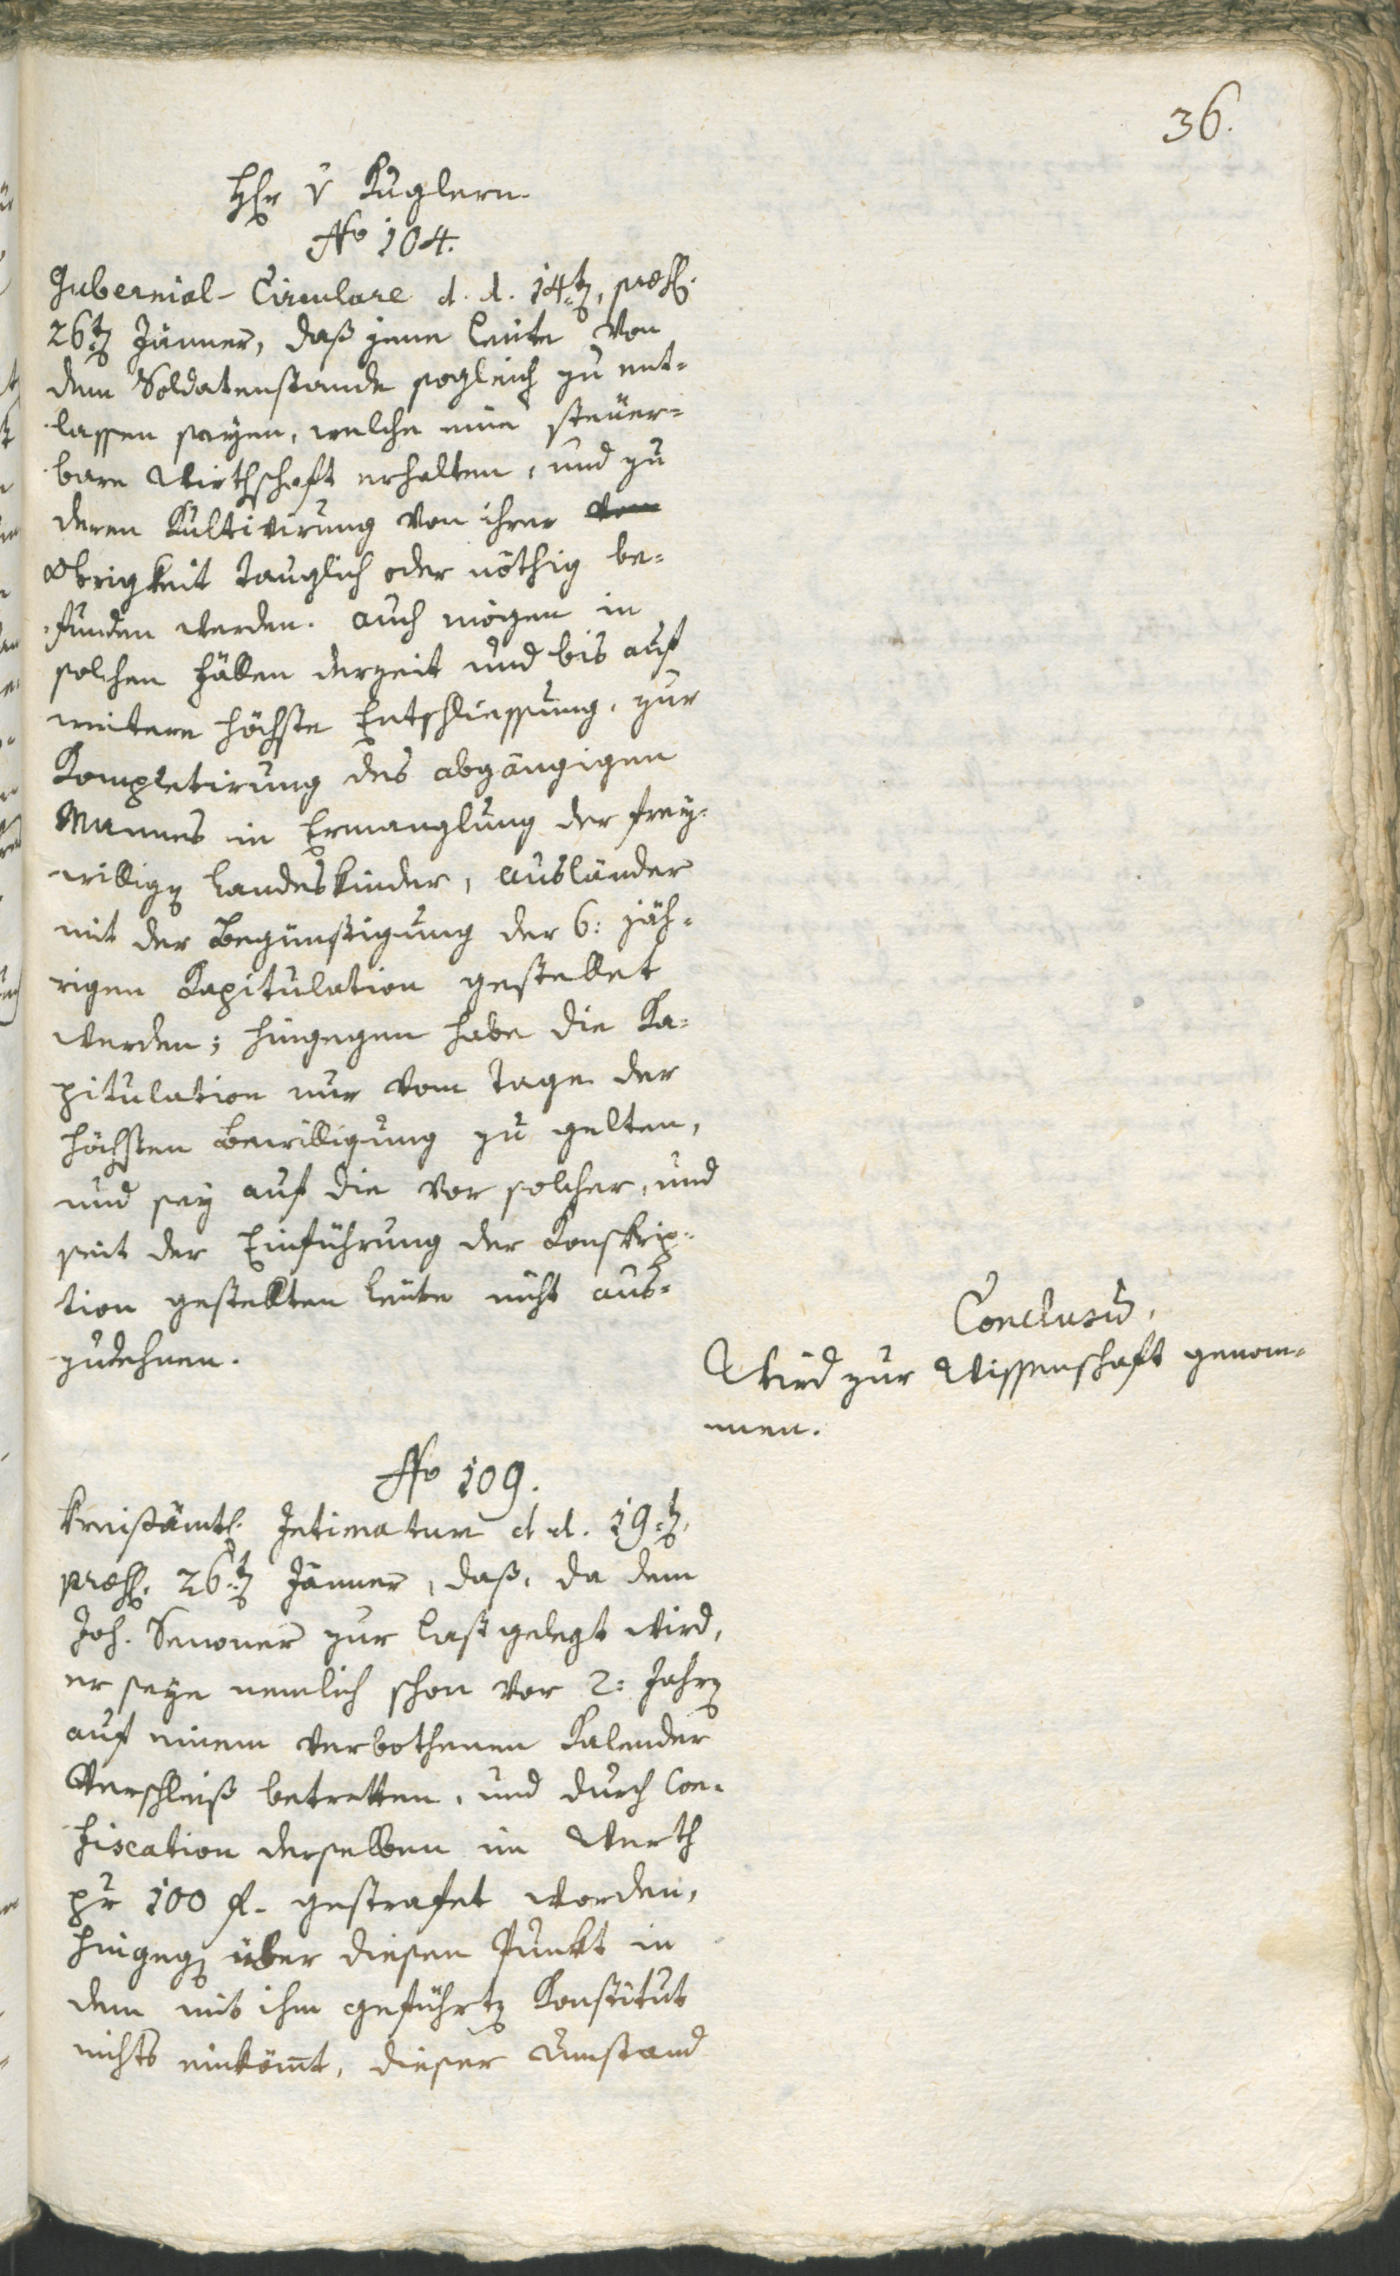 36.
H͠r v Kuglern.
No 104.
Gubernial-Circulare d. d. 14t., præs.
26t. Jänner, daß jene Leüte von
dem Soldatenstande sogleich zu ent=
lassen seyen, welche eine steüer=
bare Wirthschaft erhalten, und zu
deren Kultivirung von ihrer
Obrigkeit tauglich oder nöthig be=
funden werden. auch mögen in
solchen Fällen derzeit und bis auf
weitere höchste Entschliessung, zur
Kompletirung des abgängigen
Mannes in Ermanglung der frey=
willigen Landeskinder, Ausländer
mit der Begünstigung der 6: jäh=
rigen Kapitulation gestellet
werden; hingegen habe die Ka=
pitulation nur vom Tage der
höchsten Bewilligung zu gelten,
und sey auf die vor solcher, und
seit der Einführung der Konskrip=
tion gestellten Leüte nicht aus=
zudehnen.
Conclusū.
Wird zur Wissenschaft genom=
men.
No 109.
Kreißämtl. Intimatum d. d. 19t.
præs. 26t. Jänner, daß, da dem
Joh. Senoner zur Last gelegt wird,
er seye nemlich schon vor 2: Jahren
auf einem verbothenen Kalender
Verschleiß betretten, und durch Con=
fiscation derselben im Werth
pr 100 f. gestrafet worden,
hingegen über diesen Punkt in
dem mit ihm geführten Konstitut
nichts einkom̄t, dieser Umstand